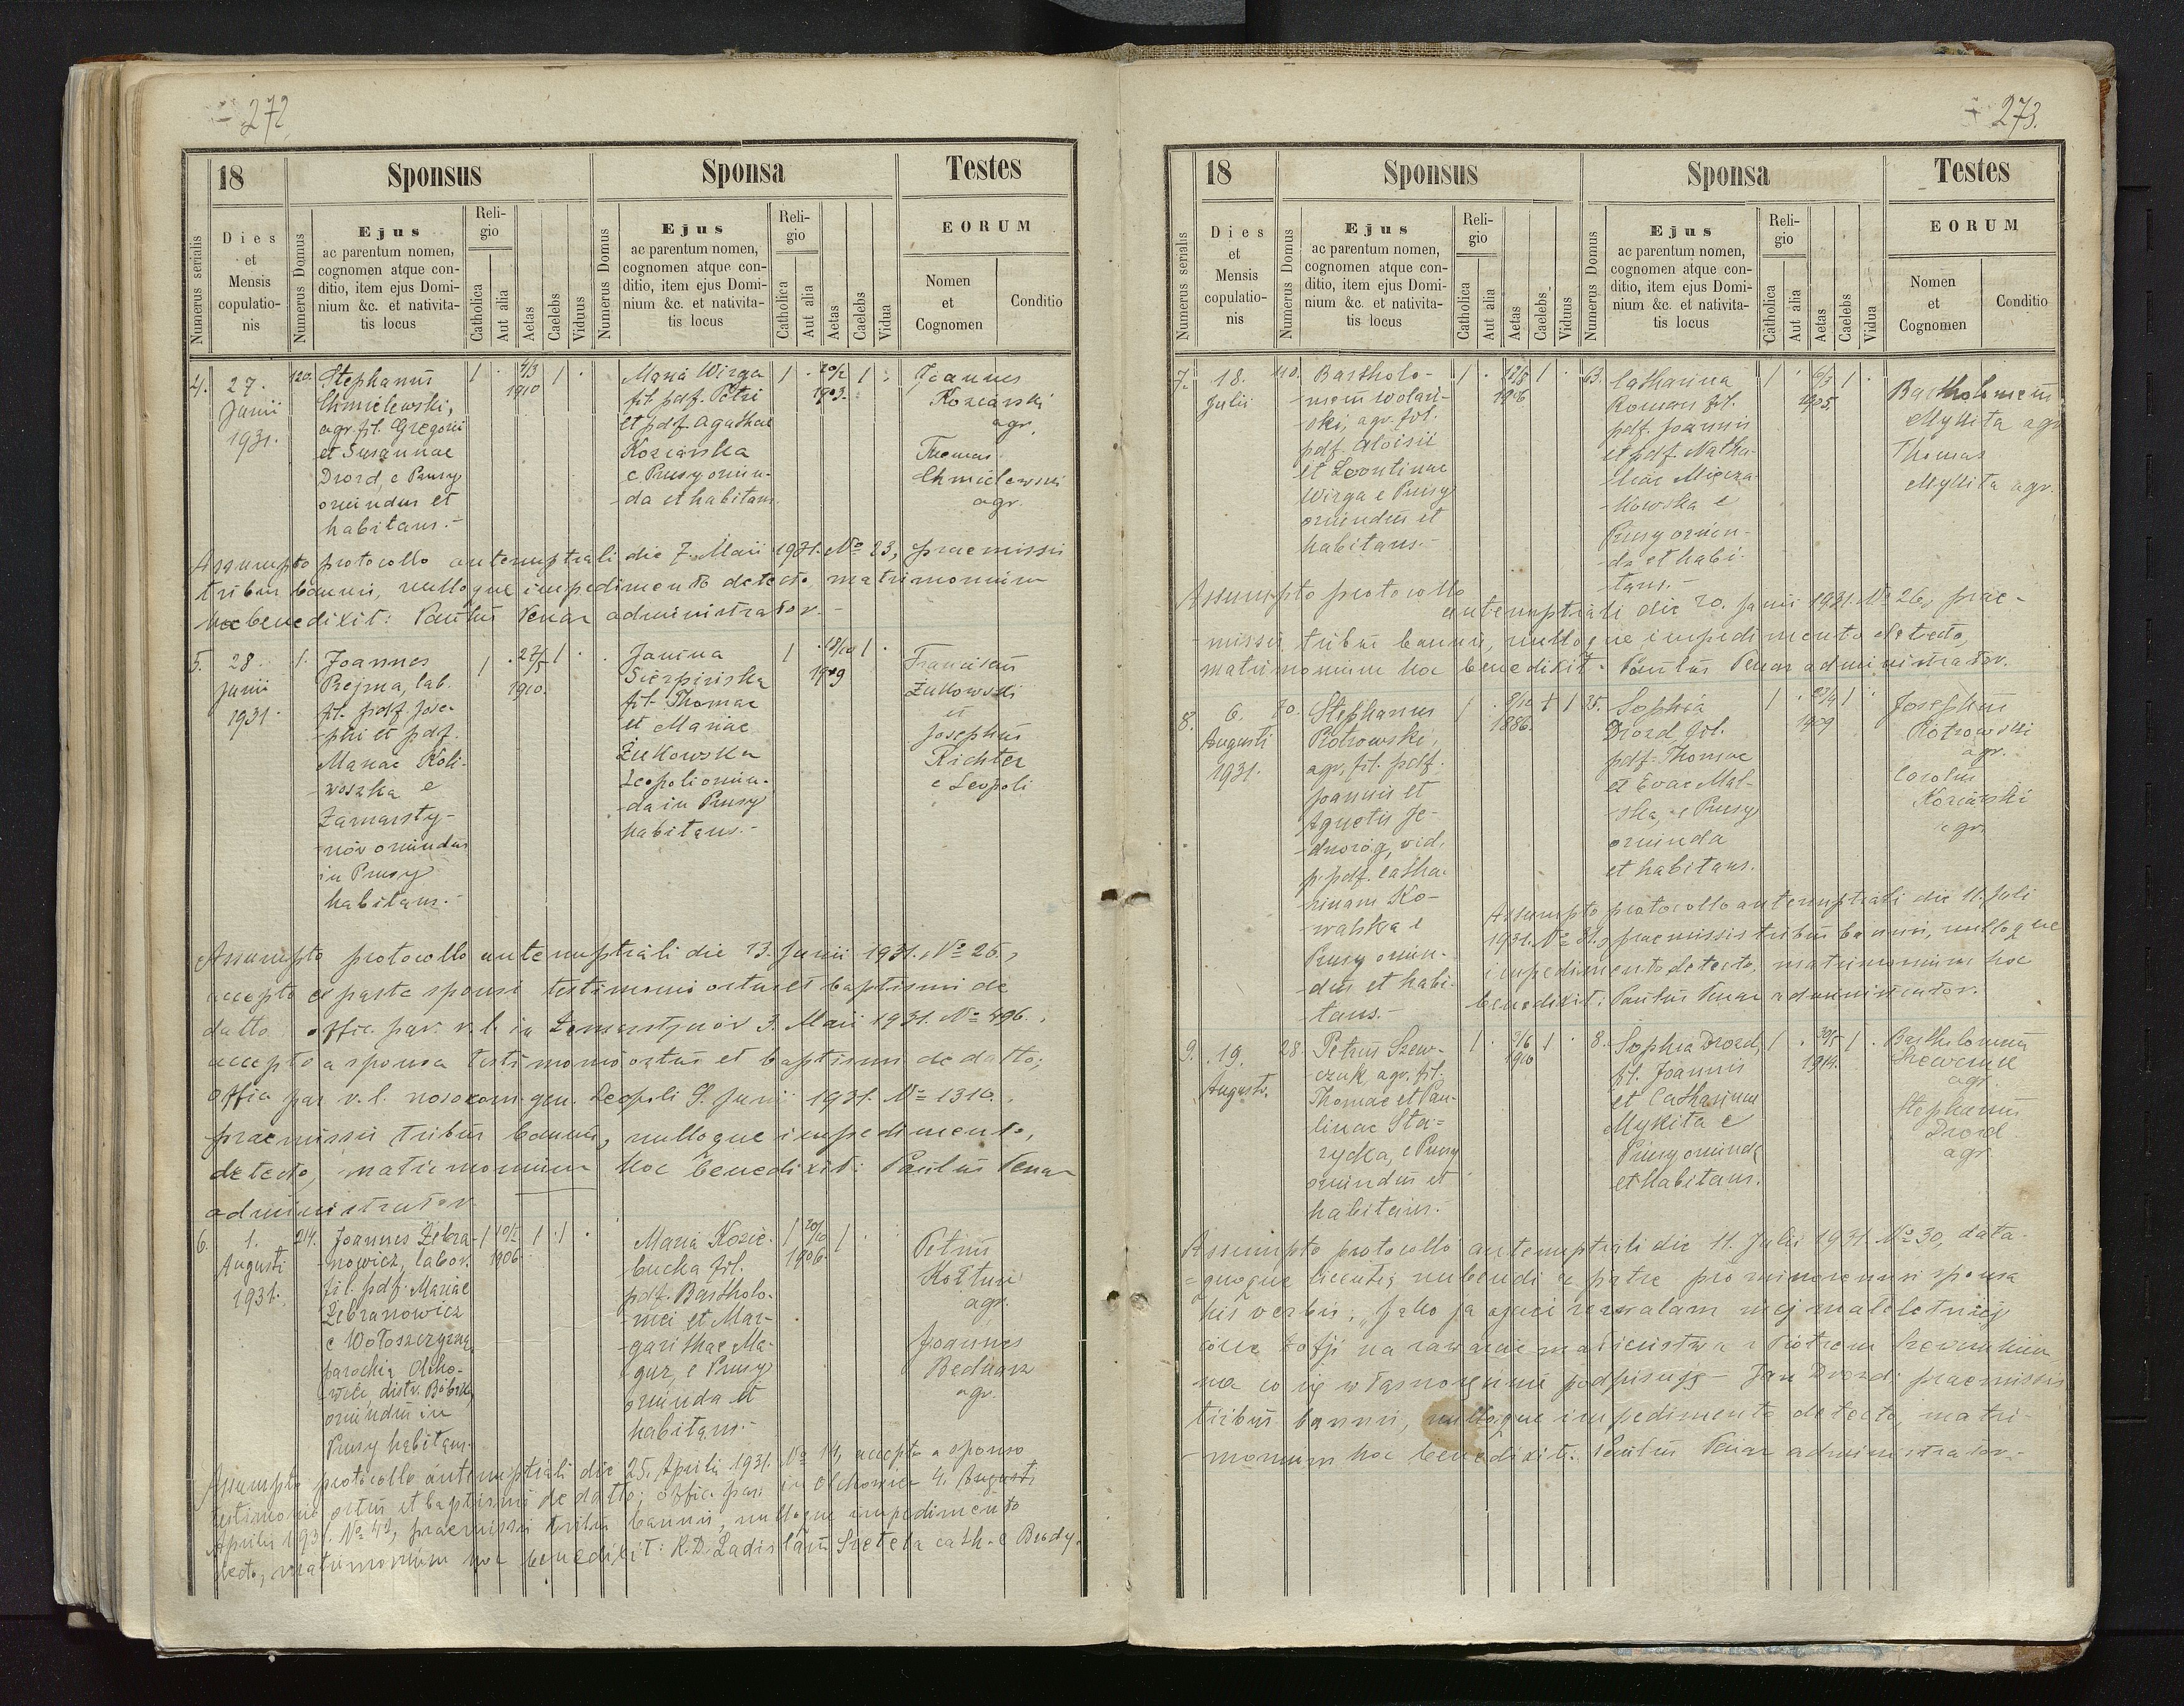 272
18
Sponsus
Sponsa
Testes
Numerus serialis
Dies
et
Mensis
copulatio-
nis
Numerus Domus
Ejus
ac parentum nomen,
cognomen atque con-
ditio, item ejus Domi-
nium &c. et nativita-
tis locus
Reli-
gio
Catholica
Aut alia
Aetas
Caelebs
Viduus
Numerus Domus
Ejus
ac parentum nomen,
cognomen atque con-
ditio, item ejus Domi-
nium &c. et nativita-
tis locus
Reli-
gio
Catholica
Aut alia
Aetas
Caelebs
Vidua
EORUM
Nomen
et
Cognomen
Conditio
4.
27.
Junii
1931.
120.
Stephanus
Chmielewski,
agr. fil. Gregorii
et Susannae
Drozd, e Prusy
oriundus et
habitans.-
1 . 4/3 1 .
1910
Maria Wirga
fil. pdf. Petri
et pdf. Agathae
Koziarska
e Prusy oriun-
da et habitans.
1 . 20/2 1 .
1903.
Joannes
Koziarski
agr.
Thomas
Chmielewski
agr.
Assumpto protocollo antenuptiali die 7. Maii 1931. No 23, praemissis
tribus bannis, nulloque impedimento detecto, matrimonium
hoc benedixit: Paulus Tenar administrator.-
5.
28.
Junii
1931.
1.
Joannes
Rejma, lab.
fil. pdf. Jose-
phi et pdf.
Mariae Koli-
-woszka e
Zamarsty-
-nów oriundus
in Prusy
habitans.-
1 . 27/5 1 .
1910.
Janina
Sierpińska
fil. Thomae
et Mariae
Żukowska
Leopoli oriun-
-da in Prusy
habitans.-
1 . 18/10 1 .
1909
Franciscus
Żukowski
et
Josephus
Richter
e Leopoli
Assumpto protocollo antenuptiali die 13. Junii 1931. No 25.,
accepto ex parte sponsi testimonio ortus et baptismi de
datto offic. par. r. l. in Zamarstynów 3. Maii 1931. No 496.,
accepto a sponsa testimonio ortus et baptismi de datto;
offic par r. l. nosocom. gen. Leopoli 9. Junii 1931. No 1310.,
praemissis tribus bannis, nulloque impedimento,
detecto, matrimonium hoc benedixit: Paulus Tenar
administrator
6.
1.
Augusti
1931.
214.
Joannes Żebra-
-nowicz, labor.
fil. pdf. Mariae
Żebranowicz
e Wołoszczyzna
parochia Olcho-
-wiec, distr. Bóbrka,
oriundus in
Prusy habitans.
1906
Maria Kozie-
bucka fil.
pdf. Bartholo-
-mei et Mar-
-garithae Ma-
-gur, e Prusy
oriunda et
habitans.-
1 20/10 1
1906
Petrus
Kołtun
agr.
Joannes
Bednarz
agr.
Assumpto protocollo antenuptiali die 25. Aprilis 1931. No 14, accepto a sponso
testimonio ortus et baptismi de datto; offic. par. in Olchowiec 4. Augusti
Aprilis 1931. No 42, praemissis tribus bannis, nulloque impedimento
tecto, matrimonium hoc benedixit: R. D. Ladislaus Szetela cath. e Brody.
273.
18
Sponsus
Sponsa
Testes
Numerus serialis
Dies
et
Mensis
copulatio-
nis
Numerus Domus
Ejus
ac parentum nomen,
cognomen atque con-
ditio, item ejus Domi-
nium &c. et nativita-
tis locus
Reli-
gio
Catholica
Aut alia
Aetas
Caelebs
Viduus
Numerus Domus
Ejus
ac parentum nomen,
cognomen atque con-
ditio, item ejus Domi-
nium &c. et nativita-
tis locus
Reli-
gio
Catholica
Aut alia
Aetas
Caelebs
Vidua
EORUM
Nomen
et
Cognomen
Conditio
7.
18.
Julii
110.
Bartholo-
-meus Wolań-
-ski, agr. fil.
pdf. Aloisii
et Leontinae
Wirga e Prusy
oriundus et
habitans.-
1 . 12/8 1 .
1906
63.
Catharina
Romans fil.
pdf. Joannis
et pdf. Natha-
-liae Mięcza-
-kowska e
Prusy oriun-
-da et habi-
tans.-
1 . 6/3 1 .
1905.
Bartholomeus
Mykita agr.
Thomas
Mykita agr.
Assumpto protocollo antenuptiali die 20. Junii 1931. No 26, prae-
-missis tribus bannis, nulloque impedimento detecto,
matrimonium hoc benedixit: Paulus Tenar administrator.
8.
6.
Augusti
1931.
70.
Stephanus
Piotrowski,
agr. fil. pdf.
Joannis et
Agnetis Je-
-dnoróg, vid.
p. pdf. Catha-
rinam Ko-
-walska e
Prusy oriun-
-dus et habi-
-tans.-
1886.
35.
Sophia
Drozd fil.
pdf. Thomae
et Evae Mal-
-ska, e Prusy
oriunda
et habitans.
1 . 23/4 1 .
1909
Josephus
Piotrowski
agr.
Carolus
Koziarski
agr.
Assumpto protocollo antenuptiali die 11. Juli
1931. No 31., praemissis tribus bannis, nulloque
impedimento detecto, matrimonium hoc
benedixit: Paulus Tenar administrator.
9.
19.
Augusti.
28.
Petrus Szew-
-czuk, agr. fil.
Thomae et Pau-
-linae Sta-
-rycka, e Prusy
oriundus et
habitans.-
1910
8.
Sophia Drozd,
fil. Joannis
et Catharinae
Mykita e
Prusy oriunda
et habitans.
1 . 30/5 1 .
1914.
Bartholomeus
Szewczuk
agr.
Stephanus
Drozd
agr.
Assumpto protocollo antenuptiali die 11. Julii 1931. No 30, data-
=quoque licentia nubendi a patre pro minorenni sponsa
his verbis: "Jako ja ojciec zezwalam mej małoletniej
córce Zofji na zawarcie małżeństwa z Piotrem Szewczukiem,
na co się własnoręcznie podpisuję - Jan Drozd; praemissis
tribus bannis, nulloque impedimento detecto, matri-
-monium hoc benedixit: Paulus Tenar administrator.-